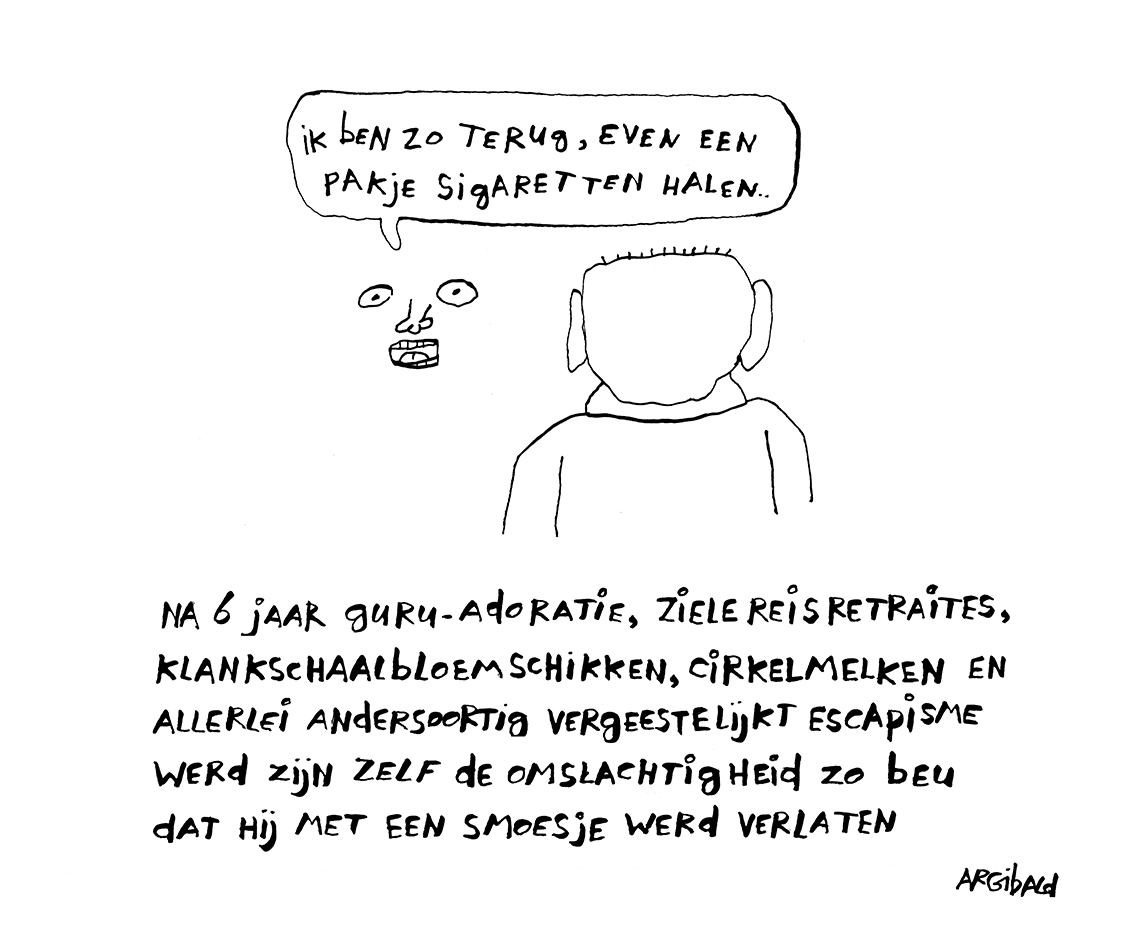 ik ben zo terug, even een
pakje sigaretten halen..
na 6 jaar guru-adoratie, zielereisretraites,
klankschaalbloemschikken, cirkelmelken en
allerlei andersoortig vergeestelijkt escapisme
werd zijn zelf de omslachtigheid zo beu
dat hij met een smoesje werd verlaten
ARGibALd